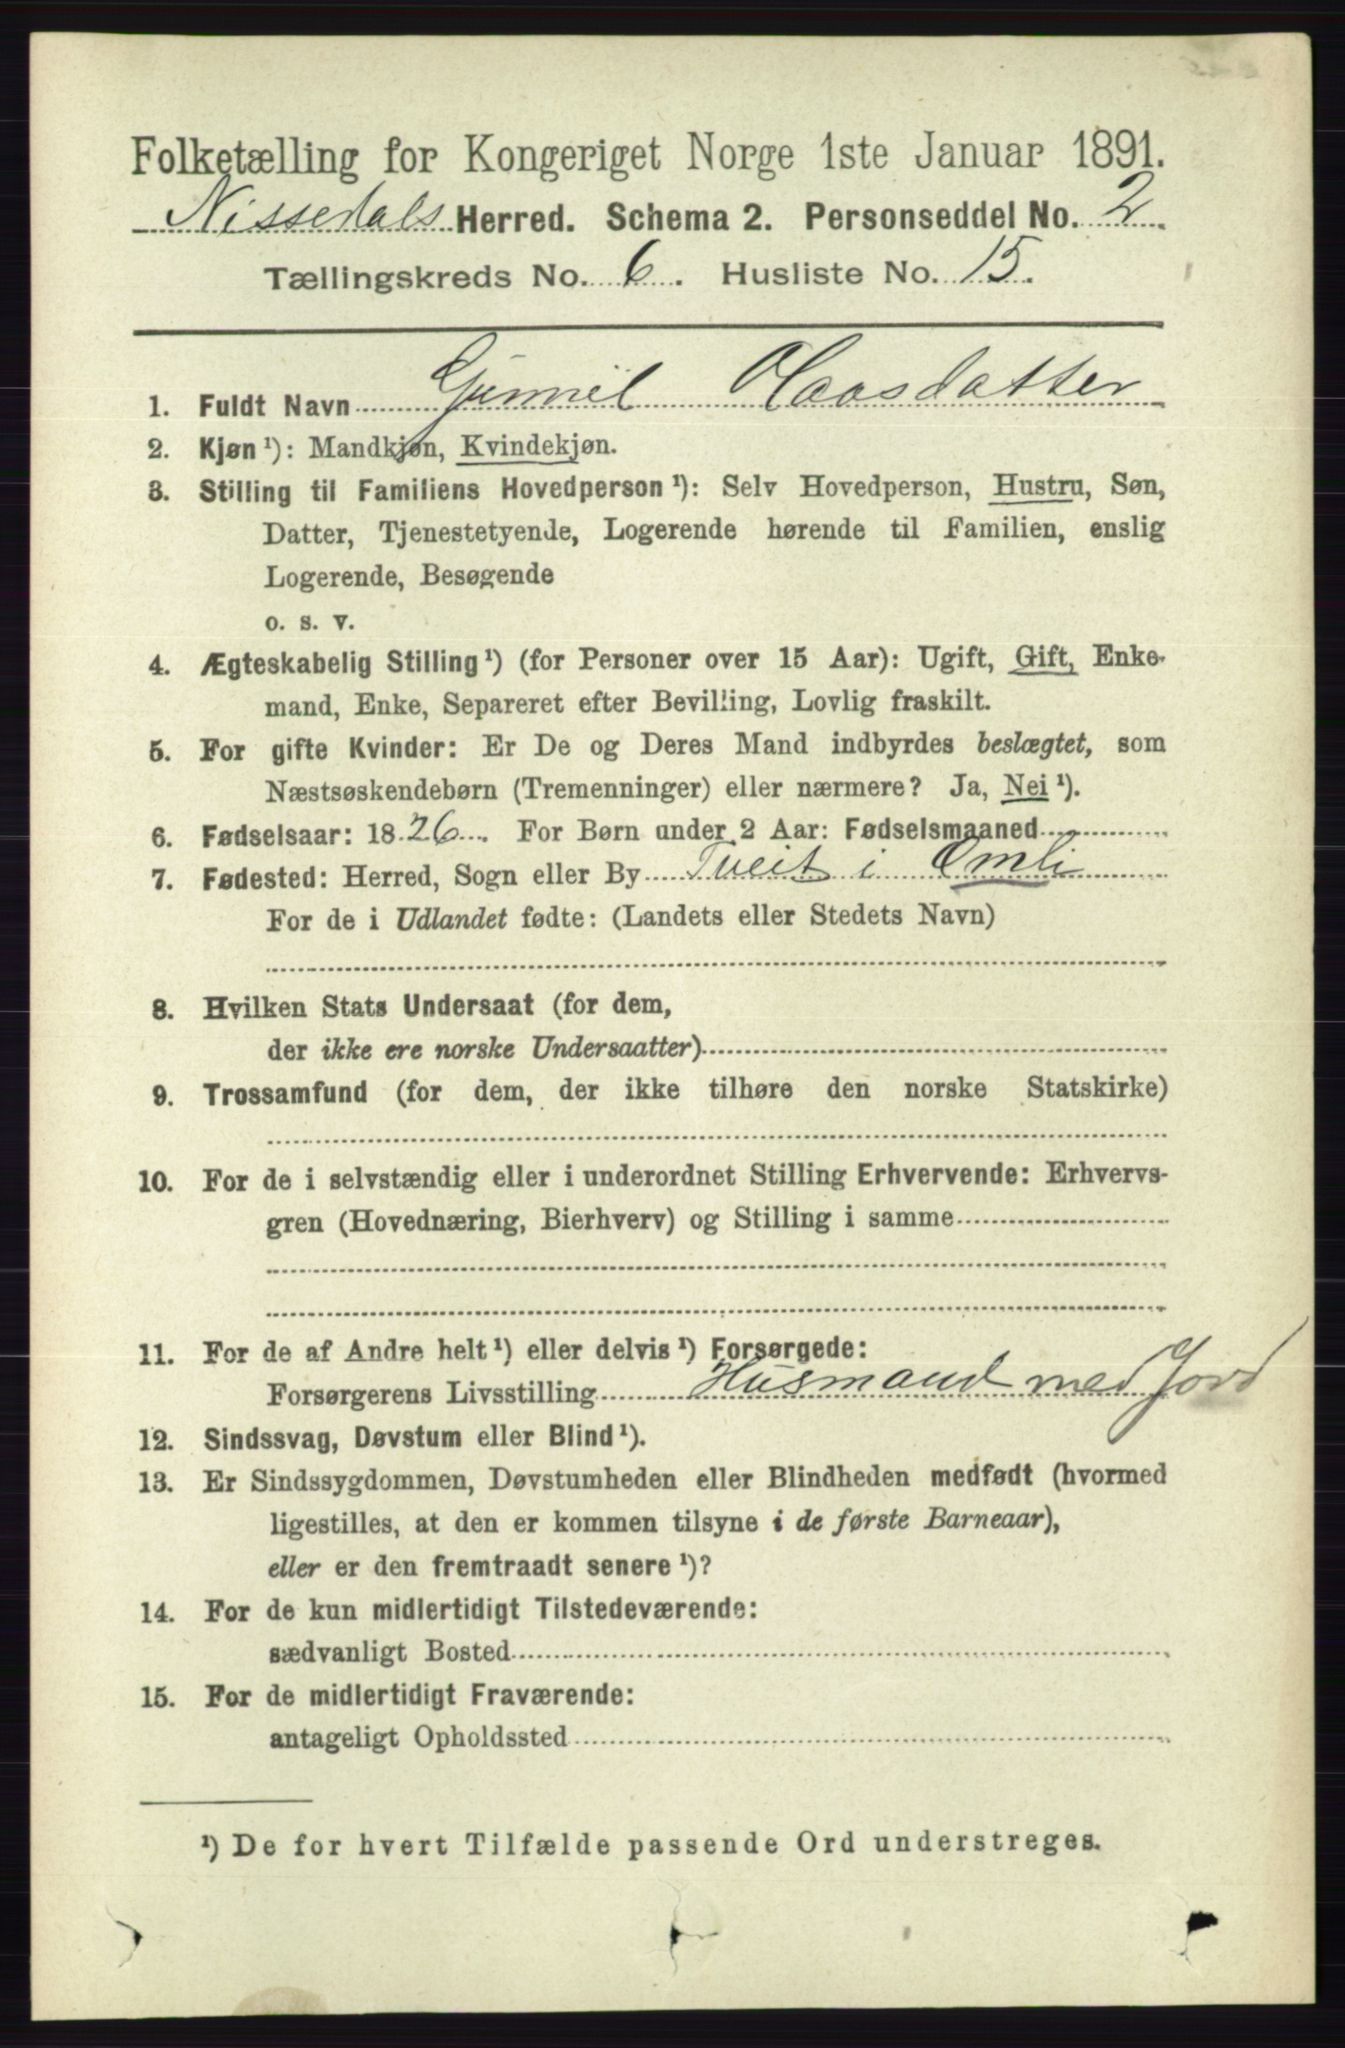 Folketælling for Kongeriget Norge 1ste Januar 1891.
Nissedals Herred. Schema 2. Personseddel No. 2
Tællingskreds No. 6. Husliste No. 15.
1. Fuldt Navn Gunnil Olavsdatter
2. Kjøn ¹): Mandkjøn, Kvindekjøn.
3. Stilling til Familiens Hovedperson ¹): Selv Hovedperson, Hustru, Søn,
Datter, Tjenestetyende, Logerende hørende til Familien, enslig
Logerende, Besøgende
o. s. v.
4. Ægteskabelig Stilling ¹) (for Personer over 15 Aar): Ugift, Gift, Enke-
mand, Enke, Separeret efter Bevilling, Lovlig fraskilt.
5. For gifte Kvinder: Er De og Deres Mand indbyrdes beslægtet, som
Næstsøskendebørn (Tremenninger) eller nærmere? Ja, Nei ¹).
6. Fødselsaar: 1826. For Børn under 2 Aar: Fødselsmaaned
7. Fødested: Herred, Sogn eller By Tveit i Omli
For de i Udlandet fødte: (Landets eller Stedets Navn)
8. Hvilken Stats Undersaat (for dem,
der ikke ere norske Undersaatter)
9. Trossamfund (for dem, der ikke tilhøre den norske Statskirke)
10. For de i selvstændig eller i underordnet Stilling Erhvervende: Erhvervs-
gren (Hovednæring, Bierhverv) og Stilling i samme
11. For de af Andre helt ¹) eller delvis ¹) Forsørgede:
Forsørgerens Livsstilling Husmand med Jord
12. Sindssvag, Døvstum eller Blind ¹).
13. Er Sindssygdommen, Døvstumheden eller Blindheden medfødt (hvormed
ligestilles, at den er kommen tilsyne i de første Barneaar),
eller er den fremtraadt senere ¹)?
14. For de kun midlertidigt Tilstedeværende:
sædvanligt Bosted
15. For de midlertidigt Fraværende:
antageligt Opholdssted
¹) De for hvert Tilfælde passende Ord understreges.